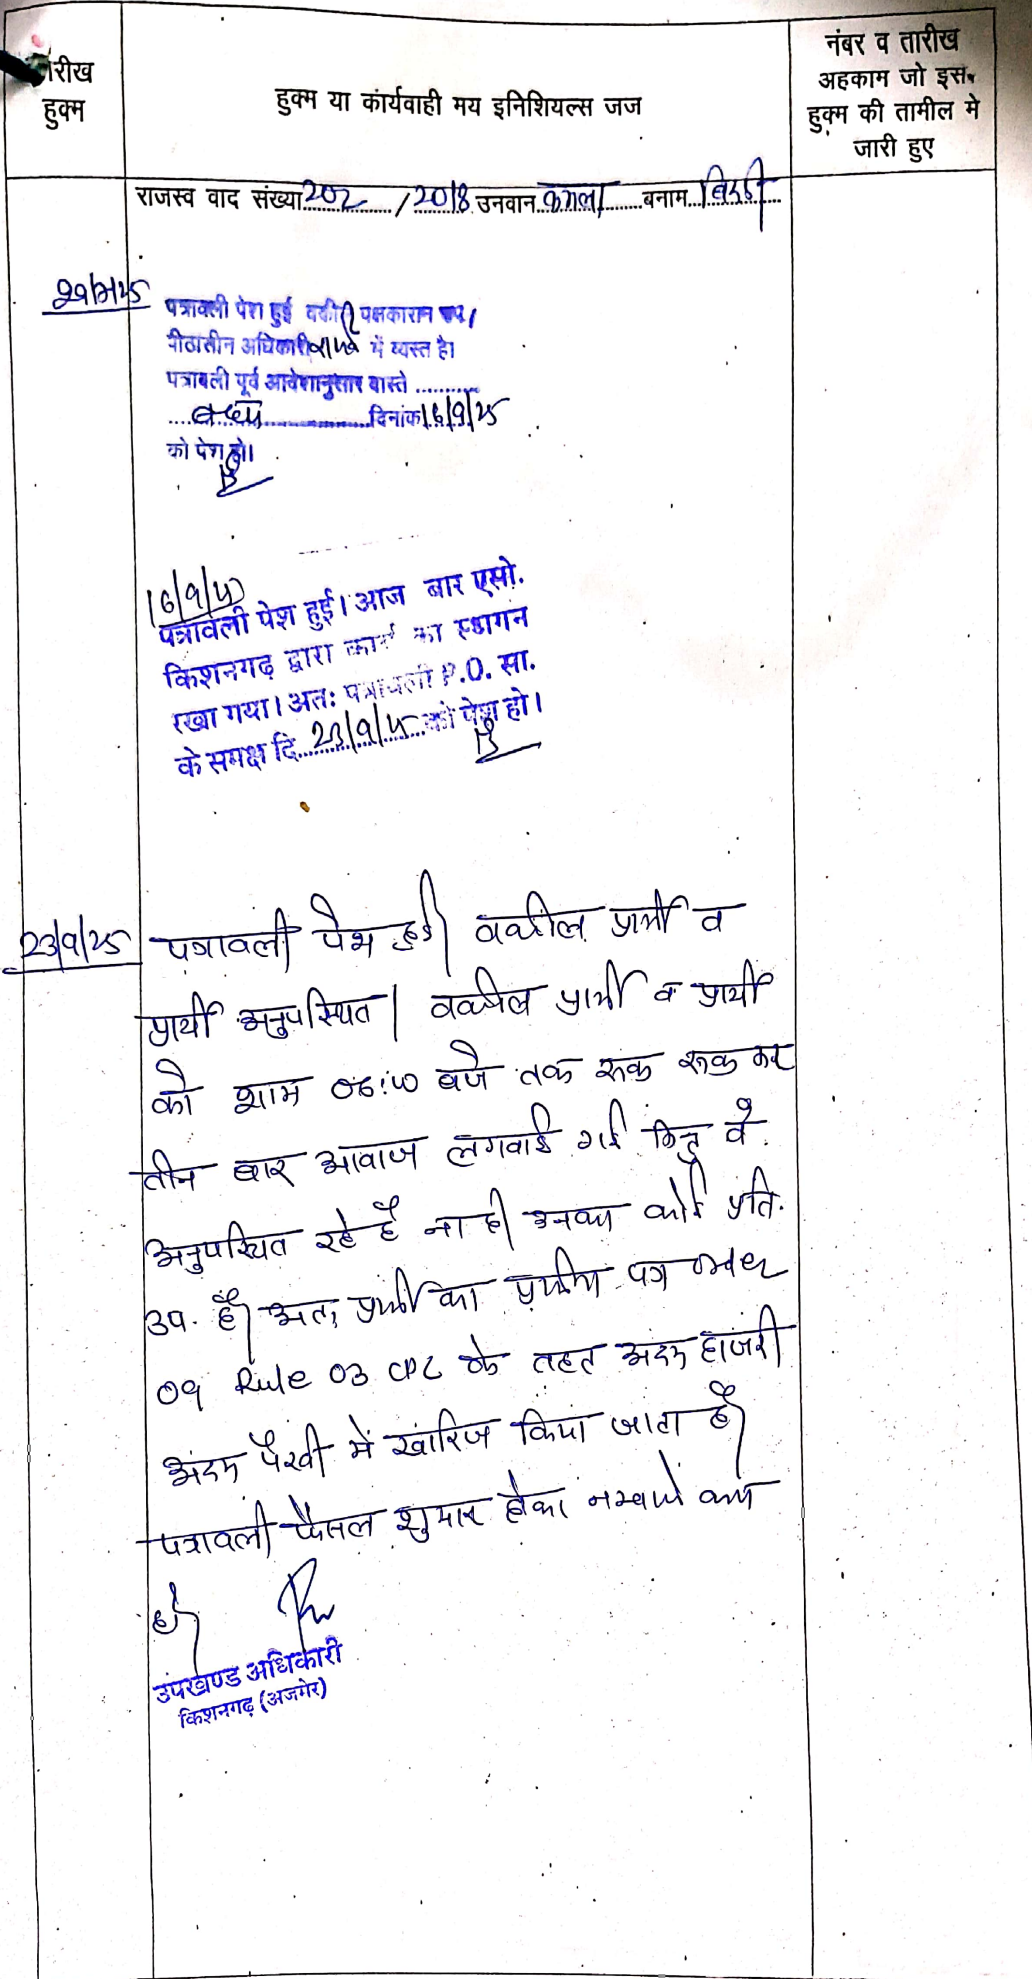 तारीख
हुक्म
हुक्म या कार्यवाही मय इनिशियल्स जज
नंबर व तारीख
अहकाम जो इस
हुक्म की तामील मे
जारी हुए
राजस्व वाद संख्या 202 / 2018 उनवान कमला बनाम
पत्रावली पेश हुई वकील पक्षकारान उप।
पीठासीन अधिकारी में व्यस्त है।
पत्रावली पूर्व आदेशानुसार वास्ते ............
बहस दिनांक 16/9/25
को पेश हो।
16/9/25
पत्रावली पेश हुई। आज बार एसो.
किशनगढ़ द्वारा कार्य का स्थगन
रखा गया। अतः पत्रावली P.O. सा.
के समक्ष दि. 23/9/25 को पेश हो।
23/9/25 पत्रावली पेश हुई। वकील प्रार्थी व
प्रार्थी अनुपस्थित। वकील प्रार्थी व प्रार्थी
को शाम 06:00 बजे तक रूक रूक कर
तीन बार आवाज लगवाई गई किंतु वे
अनुपस्थित रहे है ना ही उनका कोई प्रति.
उप. है। अतः प्रार्थी का प्रार्थना पत्र
09 Rule 03 CPC के तहत अदम हाजरी
अदम पैरवी में खारिज किया जाता है।
पत्रावली फैसल शुमार होकर नम्बर से कम
हो।
उपखण्ड अधिकारी
किशनगढ़ (अजमेर)